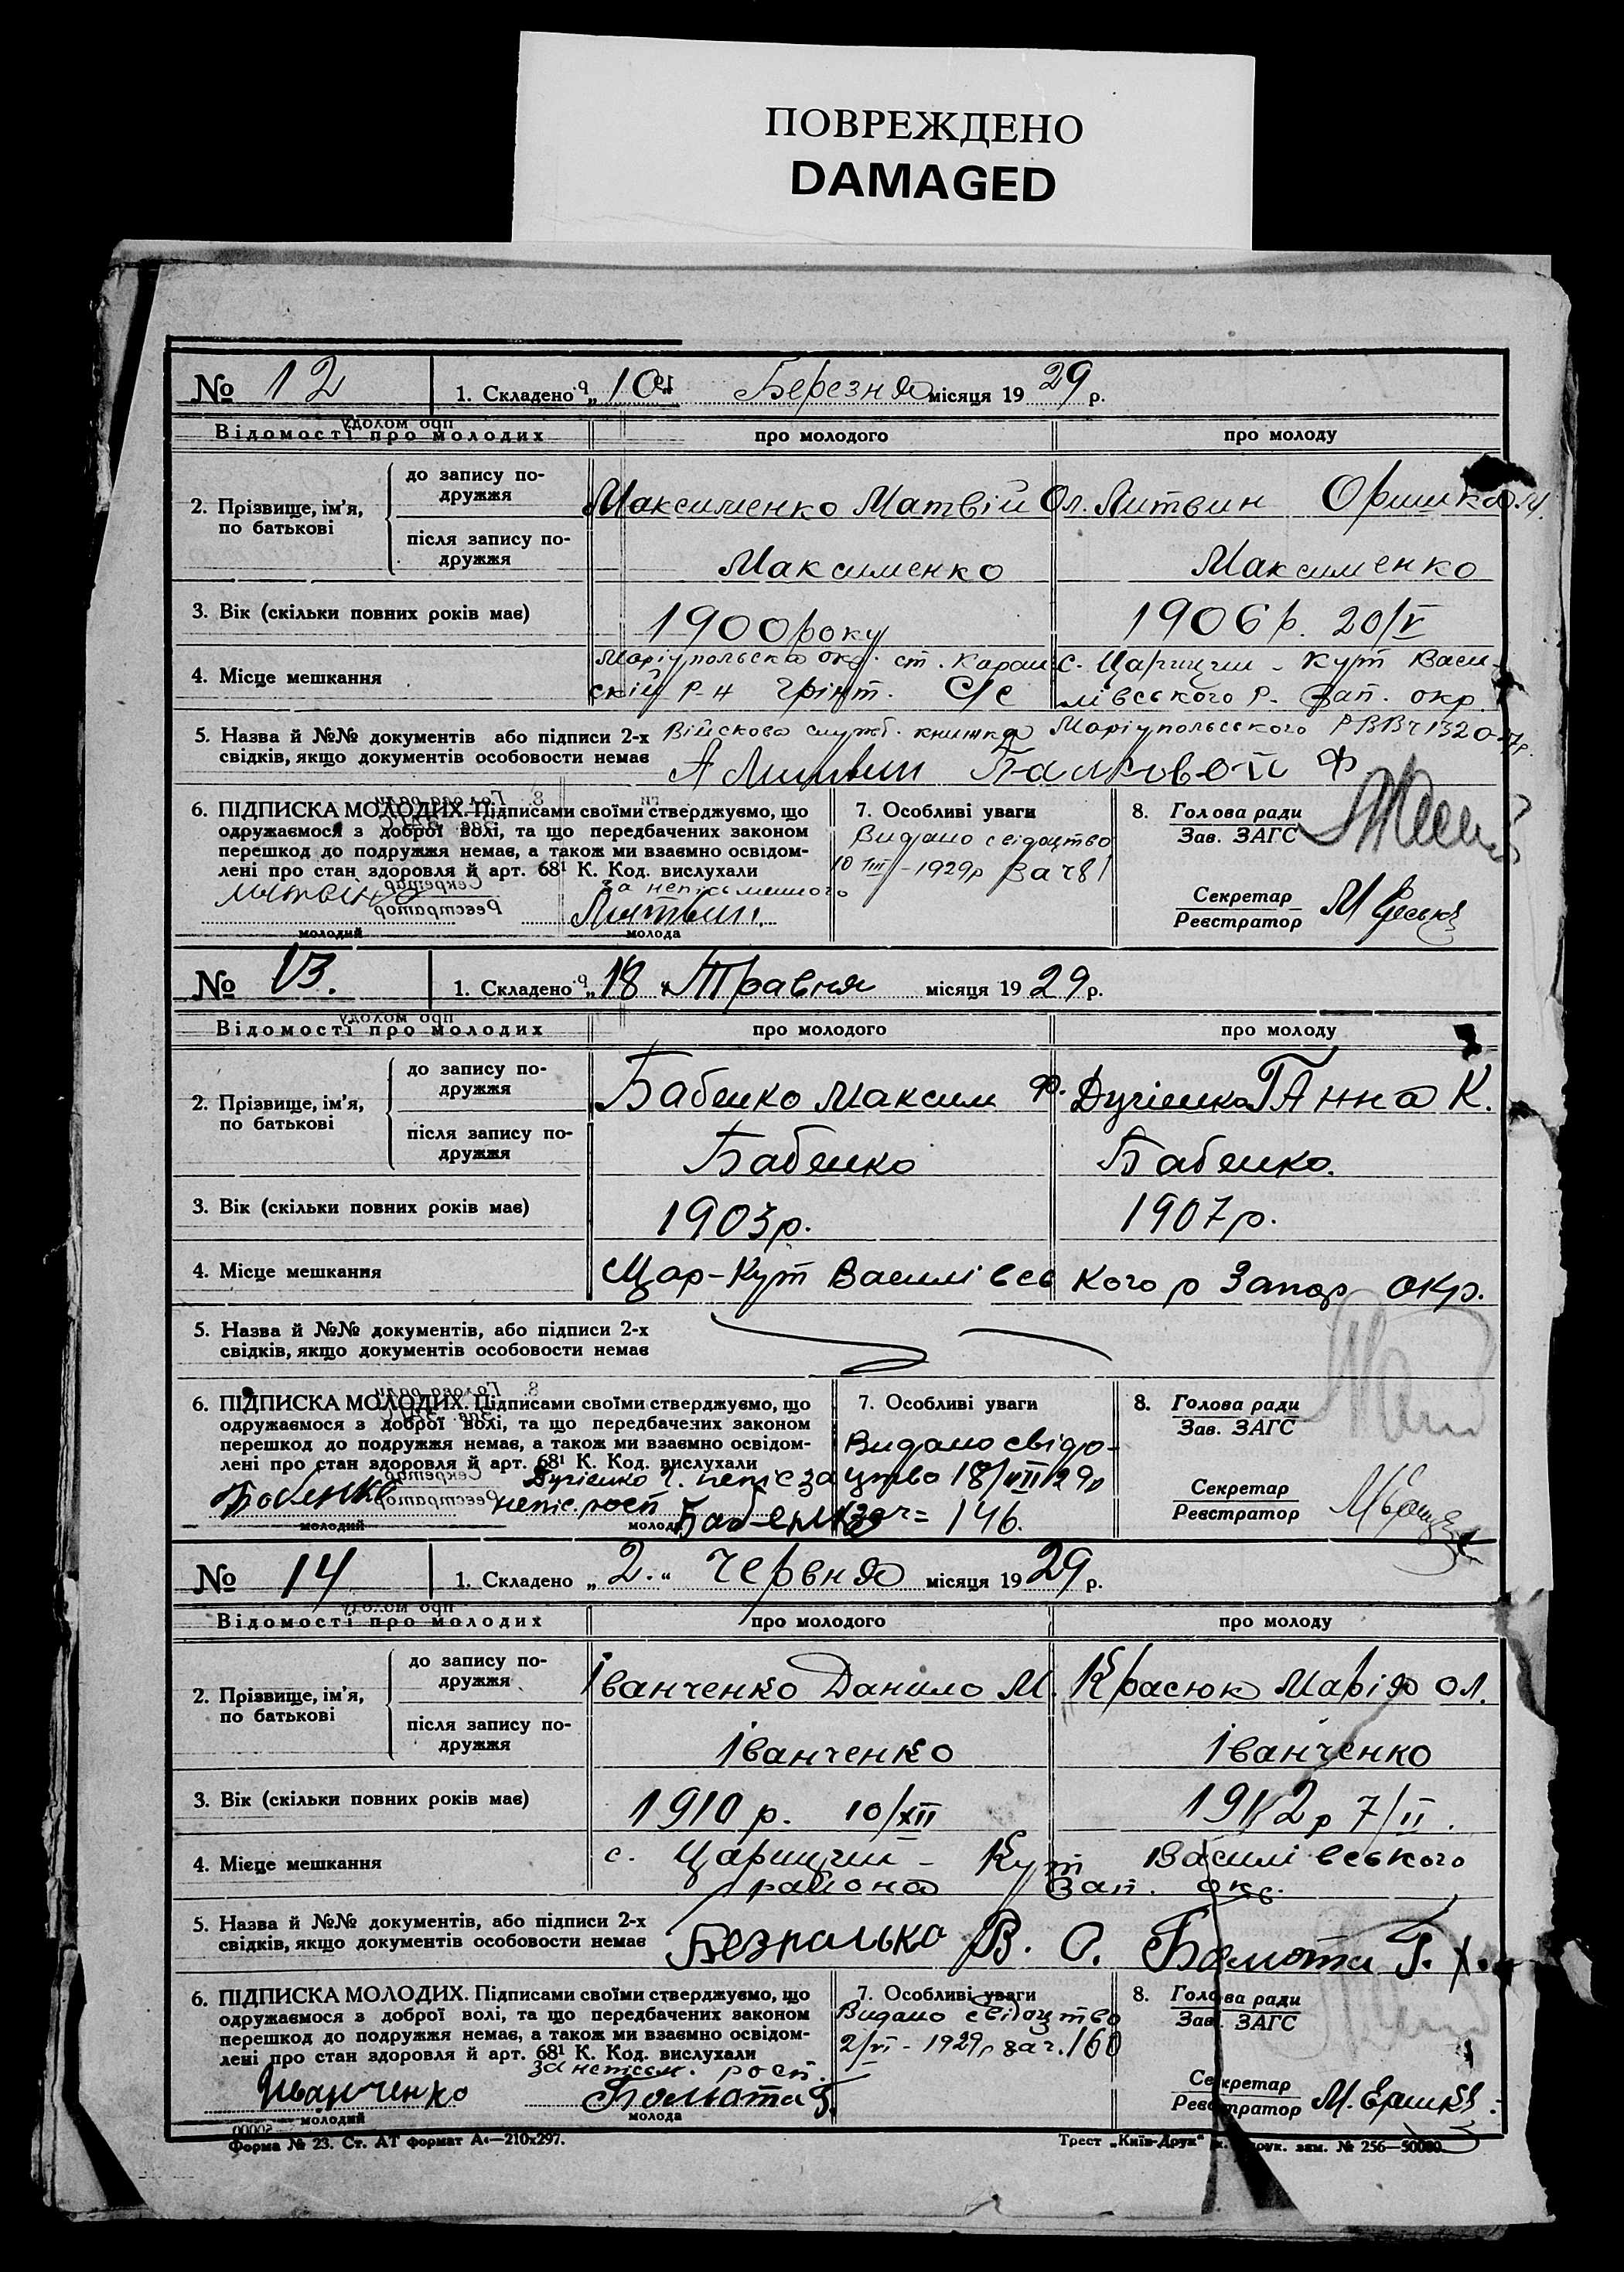 ПОВРЕЖДЕНО
DAMAGED
№ 12 1. Складено „10“ Березня місяця 1929 р.
Відомості про молодих про молодого про молоду
2. Прізвище, ім'я, по батькові
до запису подружжя Максименко Матвій Ол. Литвин Оришка М.
після запису подружжя Максименко Максименко
3. Вік (скільки повних років має) 1900 року 1906 р. 20/V
4. Місце мешкання Маріупольська окр. ст. Каран с. Царицин - Кут Васи-
ській Р-н С/с лівського Р. Зап. окр.
5. Назва й №№ документів або підписи 2-х Військова служб. книжка Маріупольського
свідків, якщо документів особовости немає А Литвин Ф
6. ПІДПИСКА МОЛОДИХ. Підписами своїми стверджуємо, що 7. Особливі уваги 8. Голова ради
одружаємося з доброї волі, та що передбачених законом Видано свідоцтво Зав. ЗАГС
перешкод до подружжя немає, а також ми взаємно освідом- 10/III - 1929р за ч 81
лені про стан здоровля й арт. 68¹ К. Код. вислухали
за непісьменного Секретар
Литвин. Реєстратор
молодий молода
№ 13. 1. Складено „18“ Травня місяця 1929 р.
Відомості про молодих про молодого про молоду
2. Прізвище, ім'я, по батькові
до запису подружжя Бабенко Максим Ф. Ганна К.
після запису подружжя Бабенко Бабенко.
3. Вік (скільки повних років має) 1903 р. 1907 р.
4. Місце мешкання Цар-Кут Василівсь кого р Запор окр.
5. Назва й №№ документів, або підписи 2-х
свідків, якщо документів особовости немає
6. ПІДПИСКА МОЛОДИХ. Підписами своїми стверджуємо, що 7. Особливі уваги 8. Голова ради
одружаємося з доброї волі, та що передбачених законом Видано свідо- Зав. ЗАГС
перешкод до подружжя немає, а також ми взаємно освідом- цтво
лені про стан здоровля й арт. 68¹ К. Код. вислухали
Бабенко Секретар
Бабенко за ч = 146. Реєстратор
молодий молода
№ 14 1. Складено „2.“ Червня місяця 1929 р.
Відомості про молодих про молодого про молоду
2. Прізвище, ім'я, по батькові
до запису подружжя Іванченко Данило М. Красюк Марія Ол.
після запису подружжя Іванченко Іванченко
3. Вік (скільки повних років має) 1910 р. 10/XII 1912 р 7/II.
4. Місце мешкання с. Царицин - Кут Василівського
района Зап. окр.
5. Назва й №№ документів, або підписи 2-х
свідків, якщо документів особовости немає В. О. Г. Х.
6. ПІДПИСКА МОЛОДИХ. Підписами своїми стверджуємо, що 7. Особливі уваги 8. Голова ради
одружаємося з доброї волі, та що передбачених законом Видано свідоцтво Зав. ЗАГС
перешкод до подружжя немає, а також ми взаємно освідом- 2/VI - 1929р за ч. 160
лені про стан здоровля й арт. 68¹ К. Код. вислухали
за непісьм. рост. Секретар
Іванченко Реєстратор
молодий молода
Форма № 23. Ст. АТ формат А₄—210x297. Трест „Київ-Друк“ друк. зам. № 256—50000.